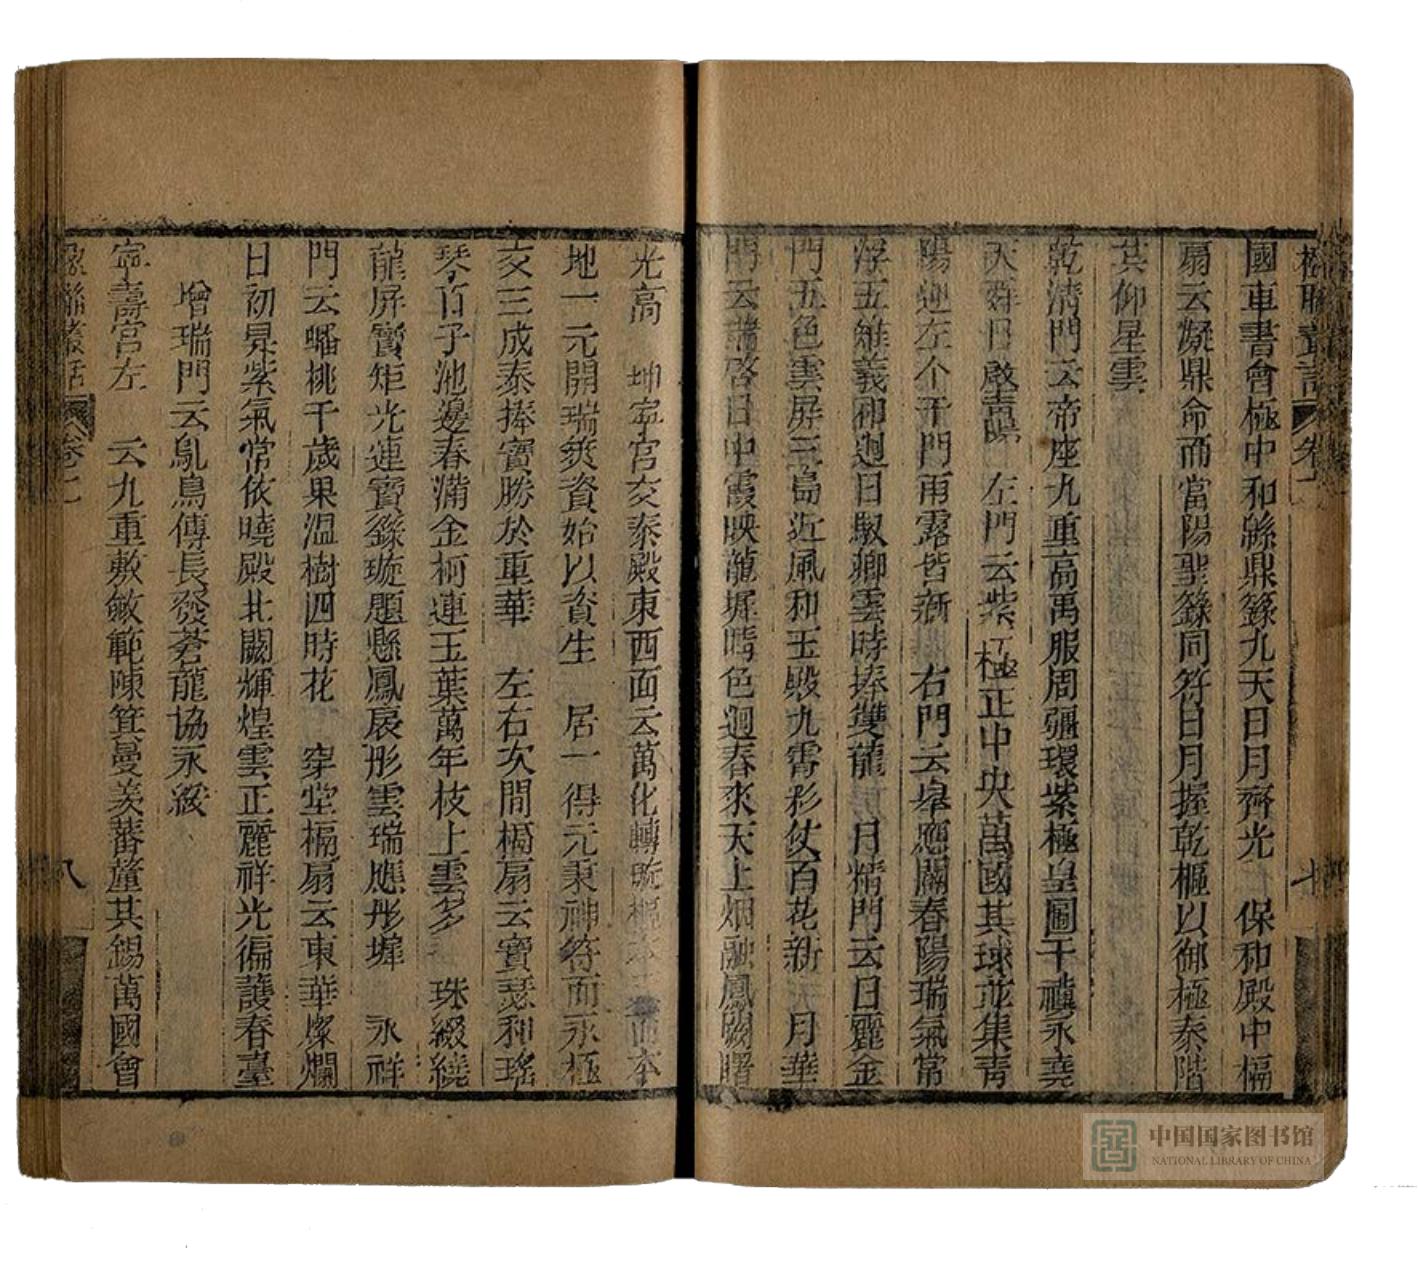 楹聯叢話 卷二 七
國車書會極中和緜鼎籙九天日月齊光 保和殿中槅
扇云凝鼎命而當陽聖籙同符日月握乾樞以御極泰階
其仰星雲
乾清門云帝座九重高禹服周疆環紫極皇圖千禩永堯
天舜日啟青陽 左門云紫極正中央萬國共球並集青
陽迎左个千門雨露皆新 右門云皋應闢春陽瑞氣常
浮五雉義和迴日馭卿雲時捧雙龍 月精門云日麗金
門五色雲屏三島近風和玉殿九霄彩仗百花新 月華
門云瑞啓日中霞映龍墀晴色迴春來天上烟融鳳闕曙
光高 坤寧宮交泰殿東西面云萬化轉璇樞本立而本
地一元開瑞莢資始以資生 居一得元秉神符而永極
交三成泰捧寶勝於重華 左右次間槅扇云寶瑟和瑤
琴百子池邊春滿金柯連玉葉萬年枝上雲多 珠綴繞
龍屏寶矩光連寶籙璇題懸鳳扆彤雲瑞應彤墀 永祥
門云蟠桃千歲果溫樹四時花 穿堂槅扇云東華燦爛
日初昇紫氣常依曉殿北闕輝煌雲正麗祥光徧護春臺
增瑞門云鳦鳥傳長發蒼龍協永綏
寧壽宮左 云九重敷斂範陳箕曼羨蕃釐其錫萬國會
楹聯叢話 卷二 八
中国国家图书馆
NATIONAL LIBRARY OF CHINA